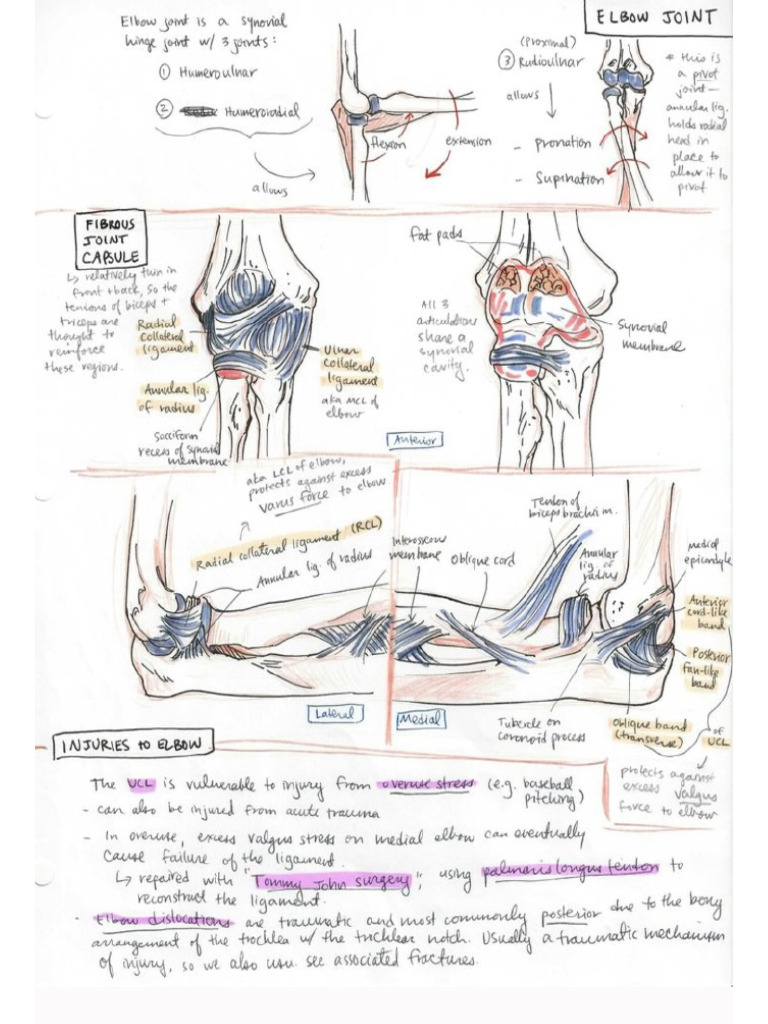 ELBOW JOINT
Elbow joint is a synovial
hinge joint w/ 3 joints:
① Humeroulnar
② Humeroradial
allows
flexion
extension
(Proximal)
③ Radioulnar
allows
- Pronation
- Supination
* this is
a pivot
joint—
annular lig.
holds radial
head in
place to
allow it to
pivot
FIBROUS
JOINT
CAPSULE
↳ relatively thin in
front + back, so the
tensions of biceps +
triceps are
thought to
reinforce
these regions.
Radial
collateral
ligament
Annular lig.
of radius
Sacciform
recess of synovial
membrane
Ulnar
collateral
ligament
aka MCL of
elbow
Anterior
Fat pads
All 3
articulations
share a
synovial
cavity.
Synovial
membrane
aka LCL of elbow,
protects against excess
varus force to elbow
Radial collateral ligament (RCL)
Annular lig. of radius
Lateral
Interosseous
membrane
Oblique cord
Tendon of
biceps brachii m.
Annular
lig. of
radius
Medial
epicondyle
Anterior
cord-like
band
Posterior
fan-like
band
of
UCL
Oblique band
(transverse)
Tubercle on
coronoid process
Medial
protects against
excess valgus
force to elbow
INJURIES TO ELBOW
The UCL is vulnerable to injury from overuse stress (e.g. baseball
pitching)
- can also be injured from acute trauma
- In overuse, excess valgus stress on medial elbow can eventually
cause failure of the ligament.
↳ repaired with "Tommy John surgery", using palmaris longus tendon to
reconstruct the ligament.
· Elbow dislocations are traumatic and most commonly posterior due to the bony
arrangement of the trochlea w/ the trochlear notch. Usually a traumatic mechanism
of injury, so we also usu. see associated fractures.